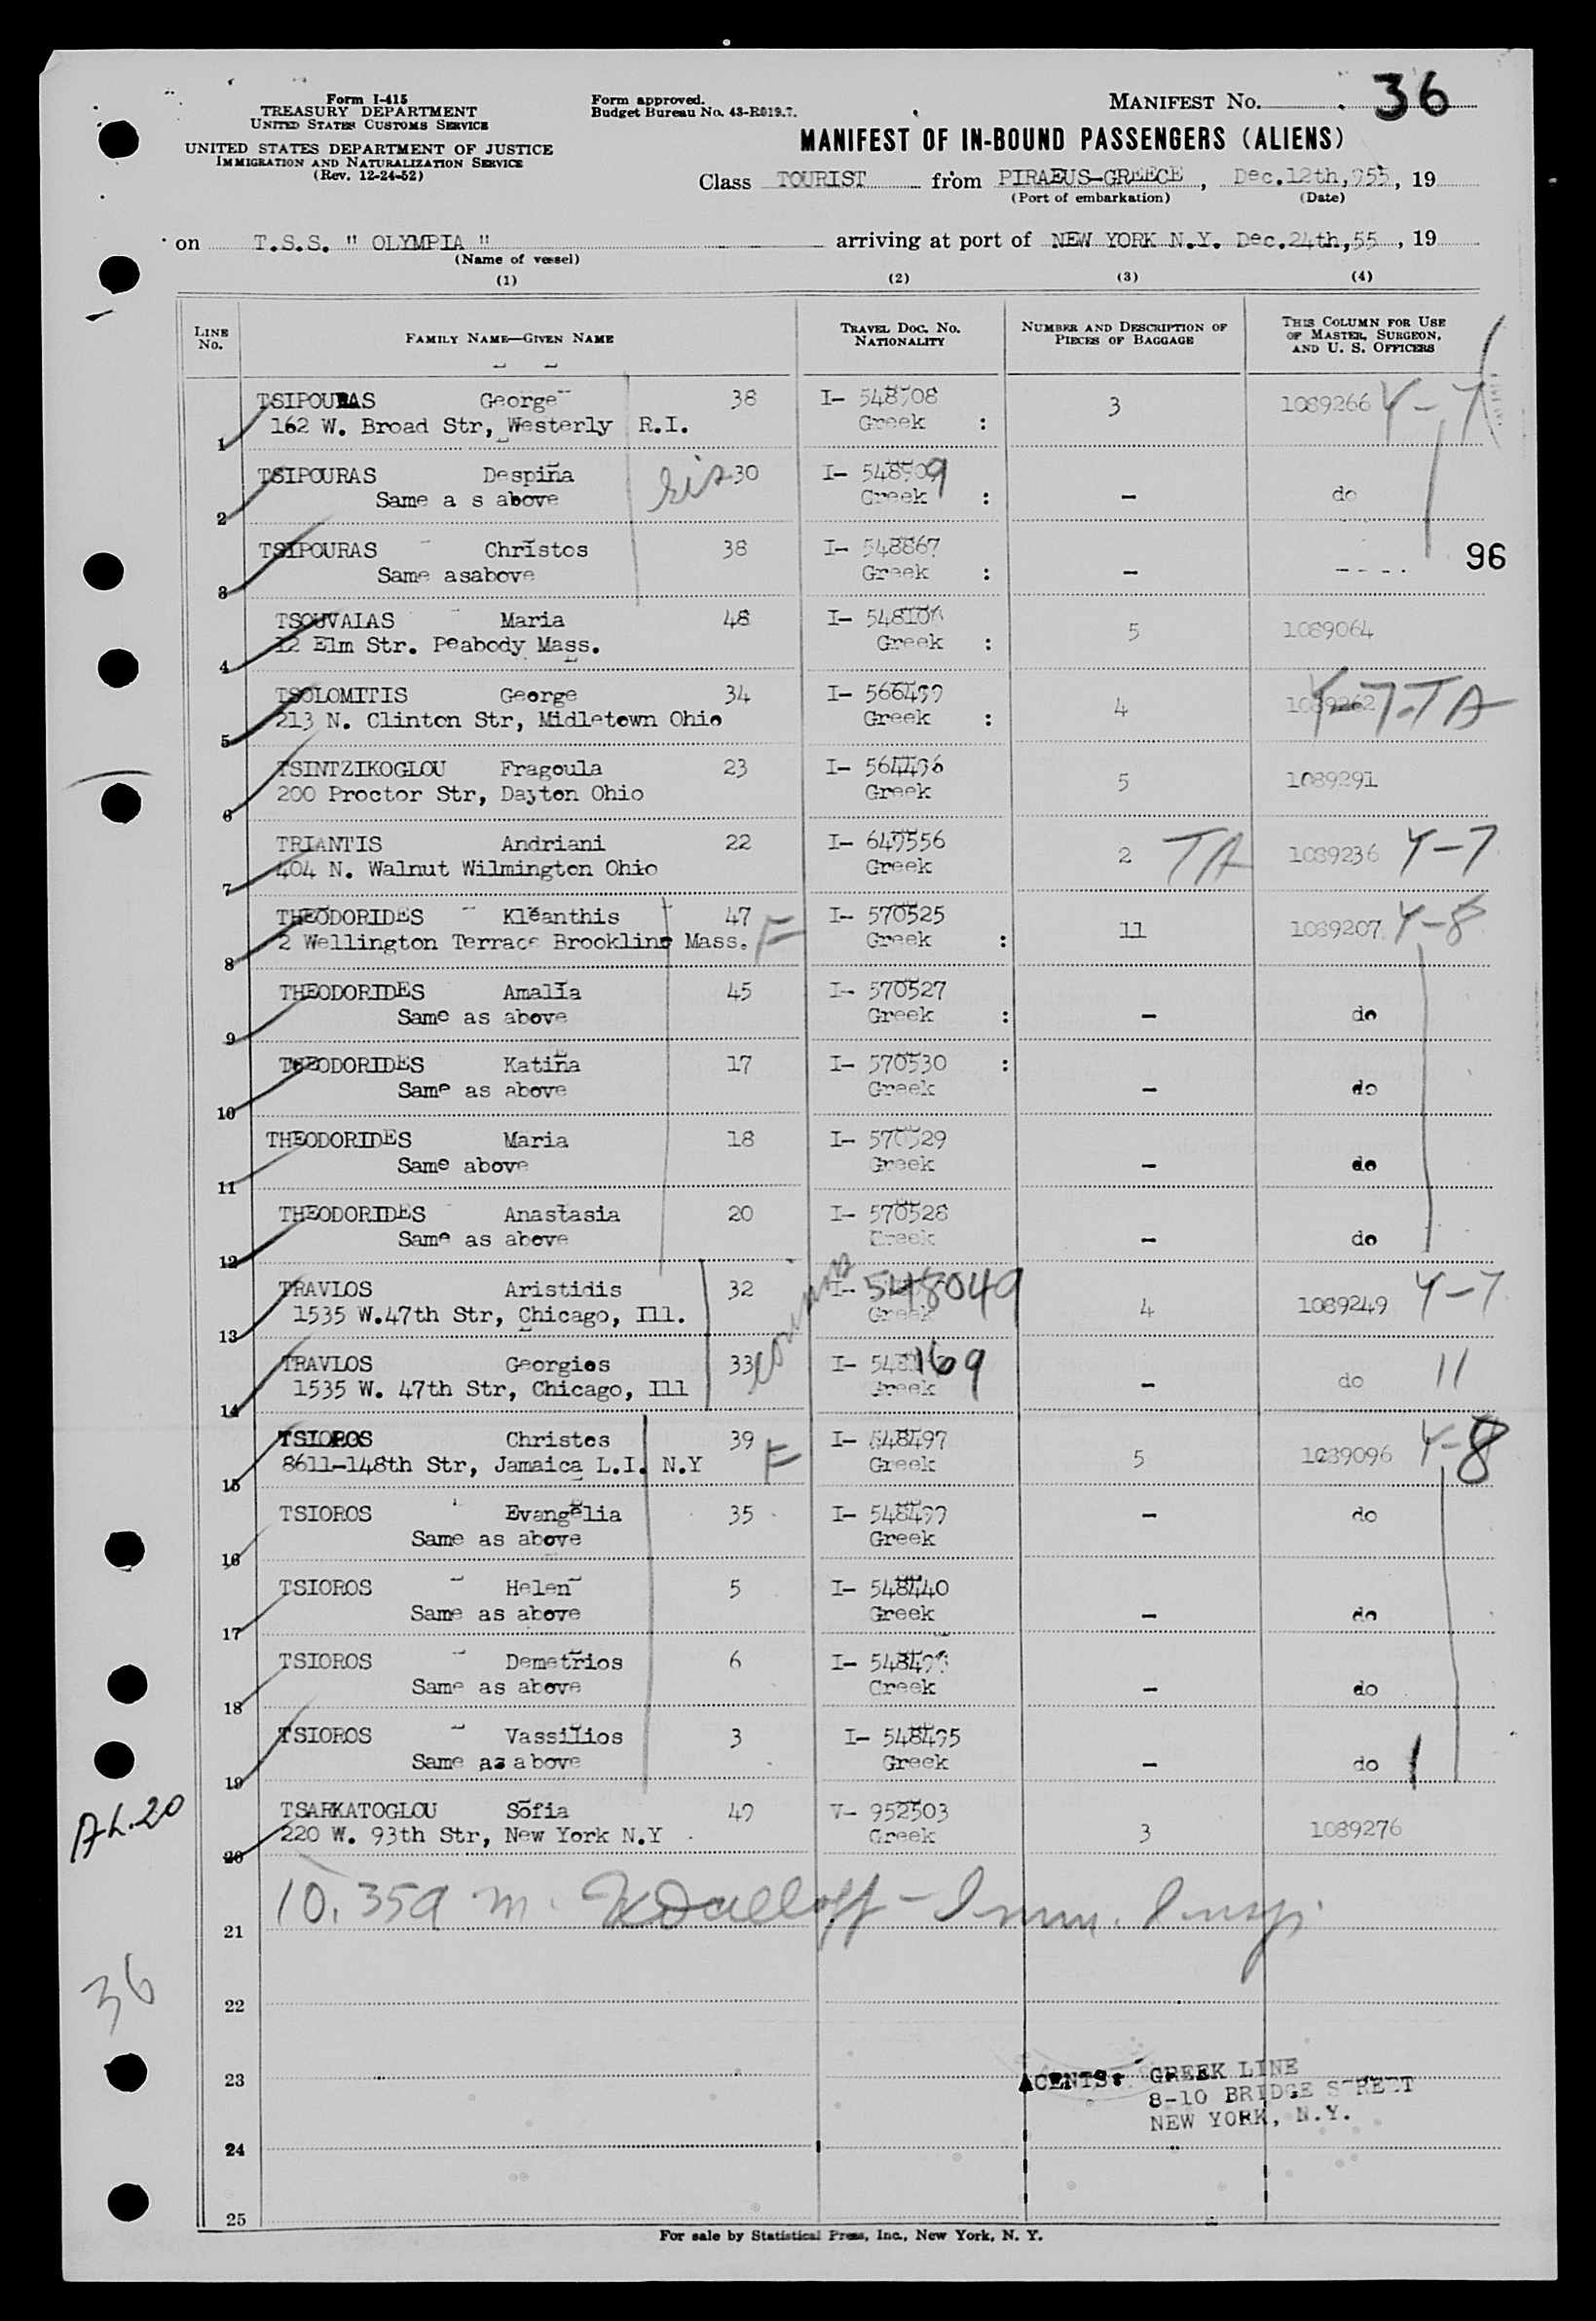 Form I-415
TREASURY DEPARTMENT
UNITED STATES CUSTOMS SERVICE
UNITED STATES DEPARTMENT OF JUSTICE
IMMIGRATION AND NATURALIZATION SERVICE
(Rev. 12-24-52)
Form approved.
Budget Bureau No. 43-R019.7.
MANIFEST No. 36
MANIFEST OF IN-BOUND PASSENGERS (ALIENS)
Class TOURIST from PIRAEUS-GREECE, Dec.12th,955, 19
(Port of embarkation) (Date)
on T.S.S. " OLYMPIA " arriving at port of NEW YORK N.Y. Dec.24th,55, 19
(Name of vessel)
(1) (2) (3) (4)
LINE No. FAMILY NAME—GIVEN NAME TRAVEL DOC. No. NATIONALITY NUMBER AND DESCRIPTION OF PIECES OF BAGGAGE THIS COLUMN FOR USE OF MASTER, SURGEON, AND U. S. OFFICERS
TSIPOURAS George 38 I- 548508 3 1089266 Y-7
1 162 W. Broad Str, Westerly R.I. Greek :
TSIPOURAS Despina sis 30 I- 548509 - do
2 Same a s above Greek :
TSIPOURAS Christos 38 I- 548867 - - - - -
3 Same asabove Greek : 96
TSOUVALAS Maria 48 I- 548106 5 1089064
4 12 Elm Str. Peabody Mass. Greek :
TSOLOMITIS George 34 I- 566499 4 1089262 Y-7-TA
5 213 N. Clinton Str, Midletown Ohio Greek :
TSINTZIKOGLOU Fragoula 23 I- 564496 5 1089291
6 200 Proctor Str, Dayton Ohio Greek
TRIANTIS Andriani 22 I- 649556 2 TA 1089236 Y-7
7 404 N. Walnut Wilmington Ohio Greek
THEODORIDES Kleanthis 47 F I- 570525 11 1089207 Y-8
8 2 Wellington Terrace Brookline Mass. Greek :
THEODORIDES Amalia 45 I- 570527 - do
9 Same as above Greek :
THEODORIDES Katina 17 I- 570530 : - do
10 Same as above Greek
THEODORIDES Maria 18 I- 570529 - do
11 Same above Greek
THEODORIDES Anastasia 20 I- 570528 - do
12 Same as above Greek
TRAVLOS Aristidis 32 cousins I- 548049 4 1089249 Y-7
13 1535 W.47th Str, Chicago, Ill. Greek
TRAVLOS Georgios 33 I- 548169 - do 11
14 1535 W. 47th Str, Chicago, Ill Greek
TSIOROS Christos 39 F I- 548497 5 1089096 Y-8
15 8611-148th Str, Jamaica L.I. N.Y Greek
TSIOROS Evangelia 35 I- 548499 - do
16 Same as above Greek
TSIOROS Helen 5 I- 548440 - do
17 Same as above Greek
TSIOROS Demetrios 6 I- - do
18 Same as above Greek
TSIOROS Vassilios 3 I- 548495 - do
19 Same as above Greek
TSARKATOGLOU Sofia 49 V- 952503 3 1089276
20 220 W. 93th Str, New York N.Y. Greek
AL.20
10.35a m. - Imm. Insp.
21
36
22
23 AGENTS: GREEK LINE
8-10 BRIDGE STREET
NEW YORK, N.Y.
24
25
For sale by Statistical Press, Inc., New York, N. Y.